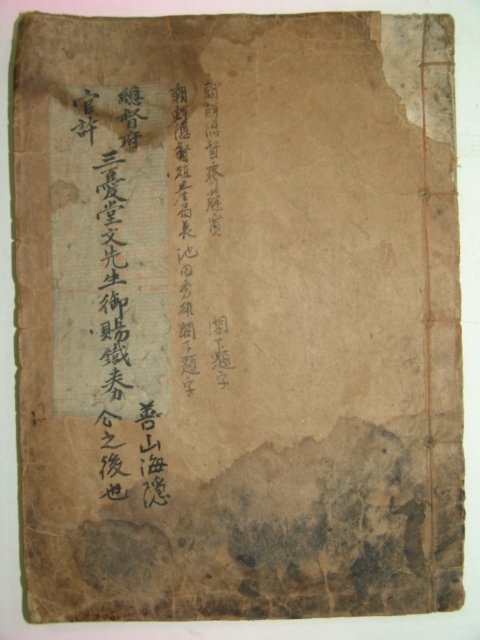 朝鮮總督齋藤實 閣下題字
朝鮮總督府殖産局長 池田秀雄 閣下題字
總督府
官許
三憂堂文先生御賜鐵券
善山海隱
公之後也